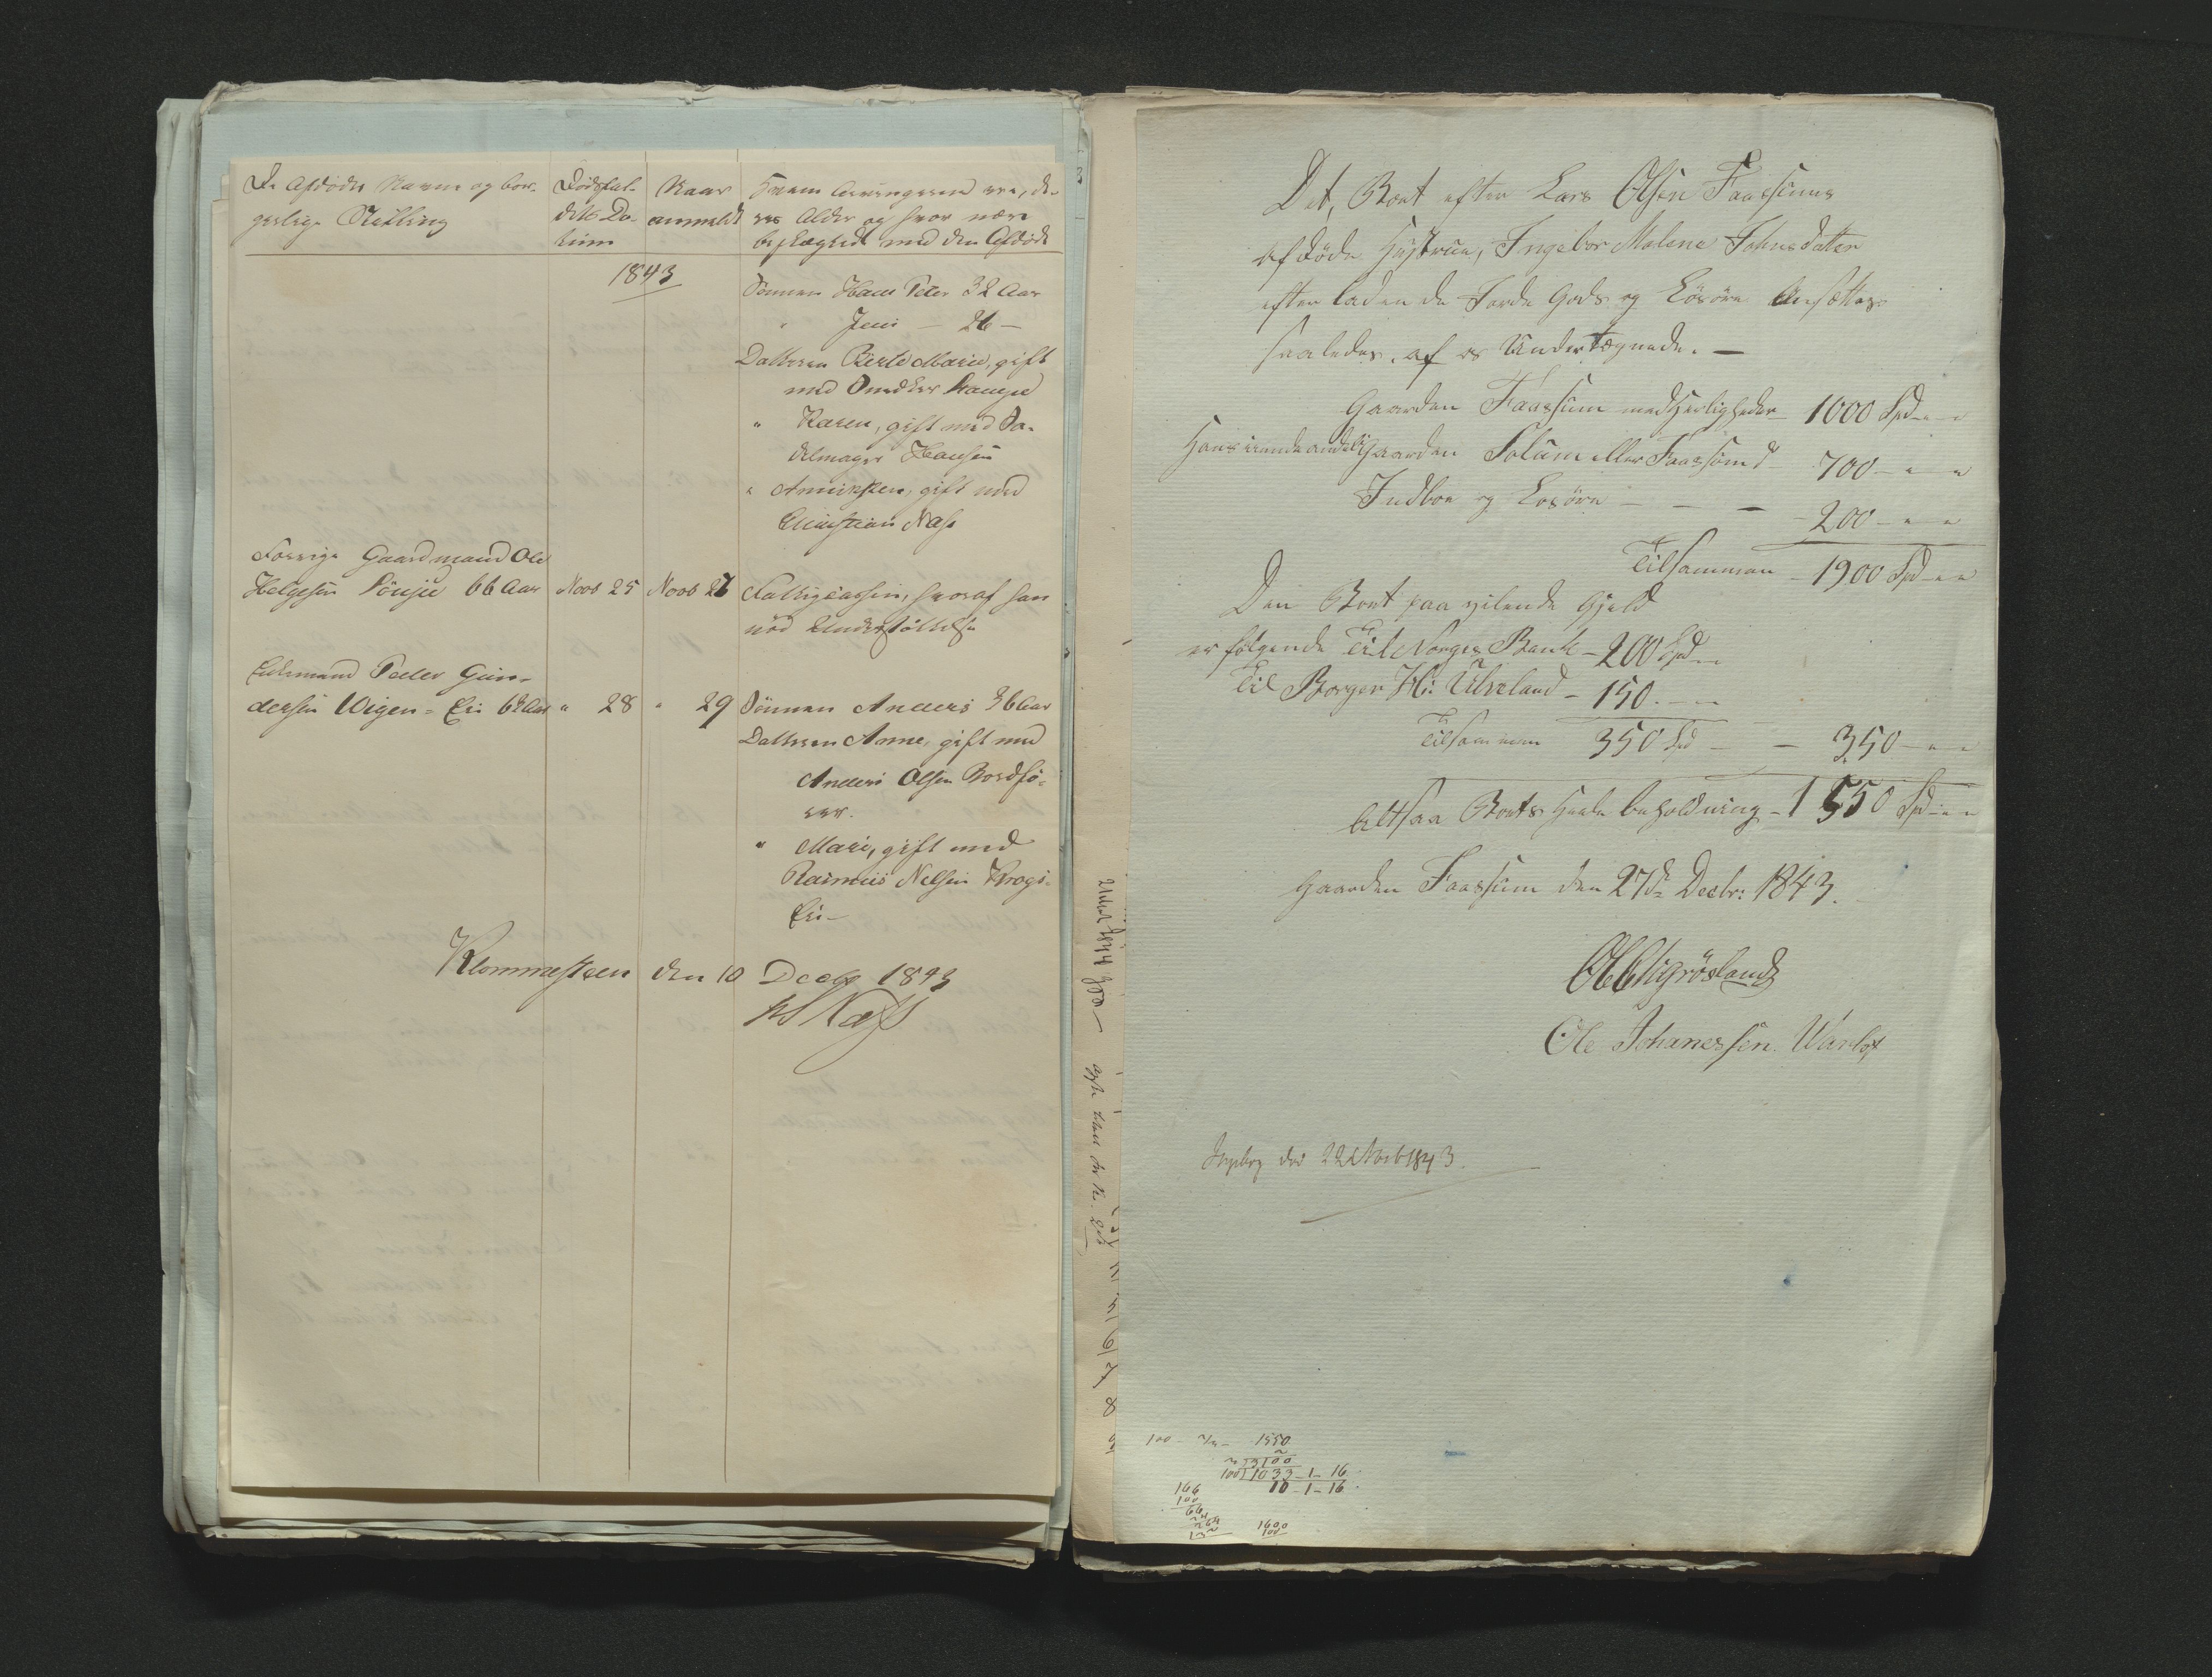 De Afdødes Navne og bor-
gerlige Stilling
Dødsfal-
dets Da-
tum
Naar
anmeldt
Hvem Arvingerne ere, de-
res Alder og hvor nær
beslægtede med den Afdøde
1843
Sønnen Hans Peter 32 Aar
" Jens — 26 —
Datteren Berte Marie, gift
med
" Karen, gift med Sa-
delmager Hansen
" gift med
Christian Næss
Forrige Gaardmand Ole
Helgesen 66 Aar Novb 25 Novb 27 Fattigcassen, hvoraf han
nød Understøttelse
Peder Gun-
dersen Wigen-Eie 62 Aar " 28 " 29 Sønnen Anders 36 Aar
Datteren Anne, gift med
Anders Olsen Bordfø-
rer.
" Mari, gift med
Rasmus Nelsen Krogs-
Eie
Klommesteen den 10 Decbr 1843
Næss
Det, Boet efter Lars Olsen Faassums
afdøde Hustrue, Ingebor Malene Johnsdatter
efterladende Jorde Gods og Løsøre Ansættes
saaledes af os Undertegnede. —
Gaarden Faassum med Herligheder 1000 Spd — "
Hans iinde andel i Gaarden Solum eller Faassum 700 — " — "
Indboe og Løsøre — — — 200 — " — "
Tilsamman — 1900 Spd — " — "
Den Boet paa hvilende Gjeld
er følgende Til Norges Bank — 200 Spd
Til Borger H: Ulveland — 150. — "
Tilsammen 350 Spd — — 350 — " — "
Altsaa Boets Heele beholdning — 1550 Spd — " — "
Gaarden Faassum den 27de Decbr: 1843.
Ole Johanessen
Ingeborg død 22 Novb 1843.
100 — 2/3 — 1550
2
3 | 3100
100 | 1033 — 1 — 16
10 — 1 — 16
166
100
66
1600
100